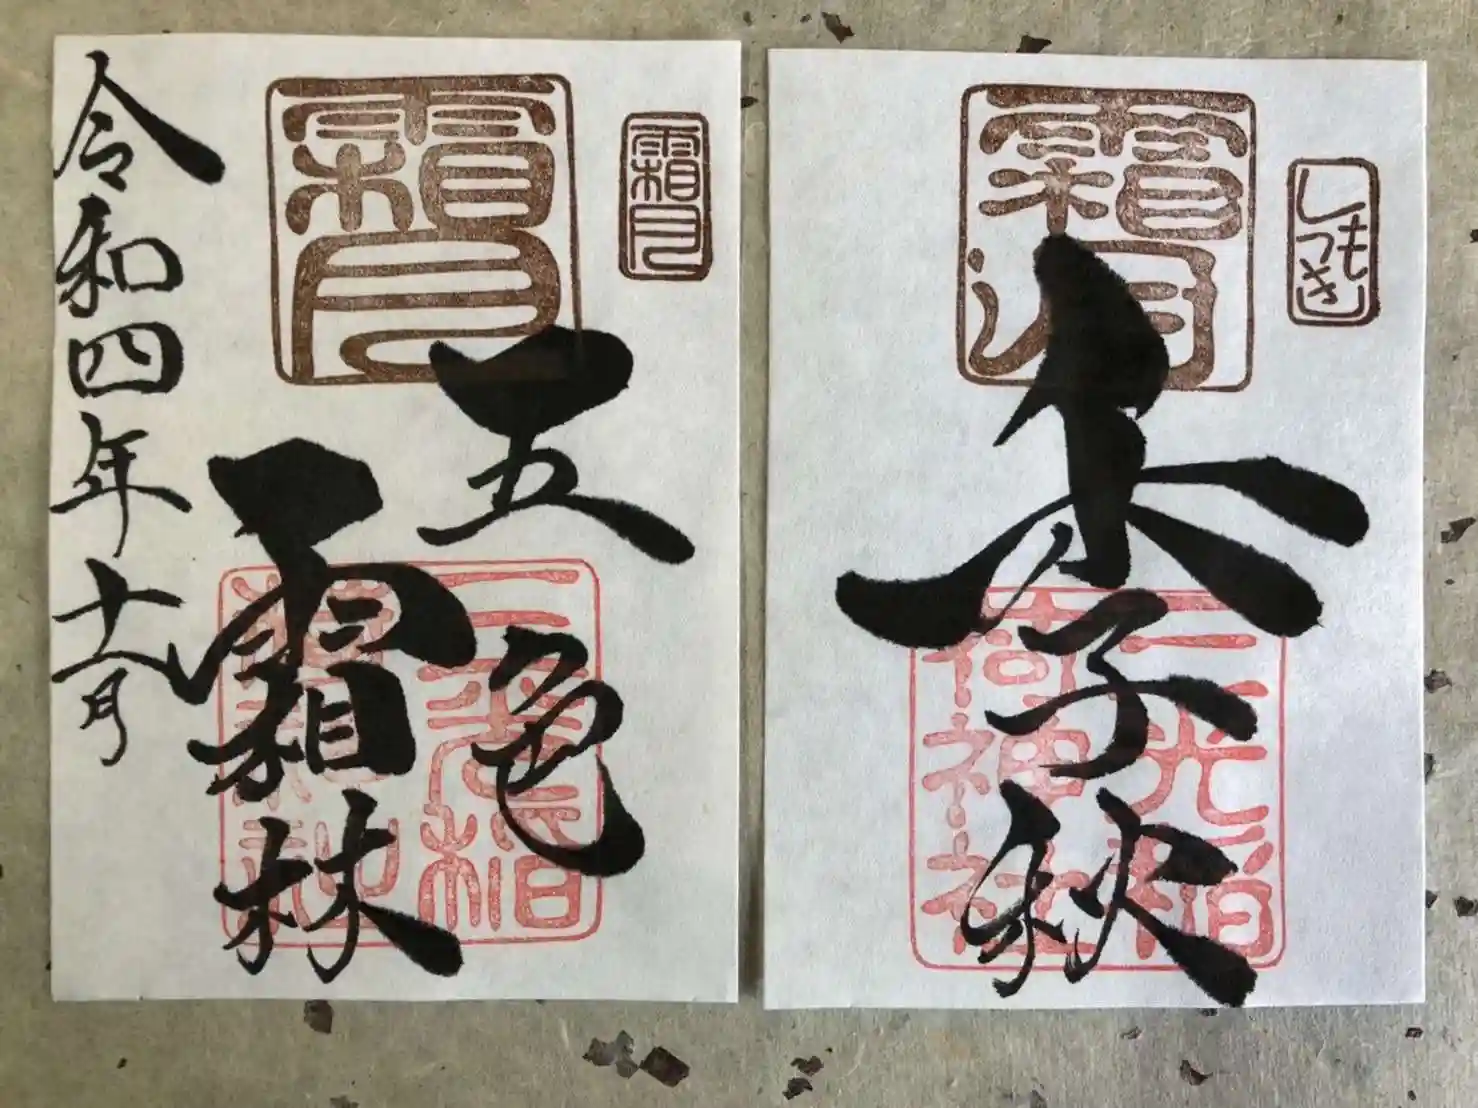 霜月
霜月
五色
霜林
三光稲
荷神社
令和四年十一月
しも
つき
霜月
季秋
三光稲
荷神社